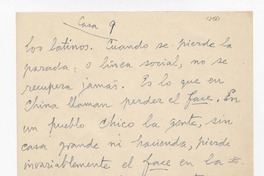 Casa 9
los latinos. Cuando se pierde la
parada, o línea social, no se
recupera jamás. Es lo que en
China llaman perder el face. En
un pueblo chico la gente, sin
casa grande ni hacienda, pierde
invariablemente el face en la